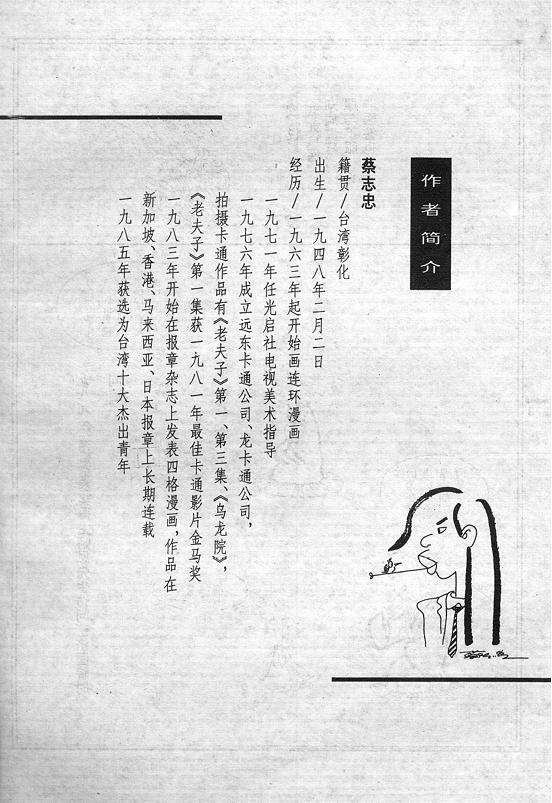 作者简介
蔡志忠
籍贯/台湾彰化
出生/一九四八年二月二日
经历/一九六三年起开始画连环漫画
一九七一年任光启社电视美术指导
一九七六年成立远东卡通公司、龙卡通公司，
拍摄卡通作品有《老夫子》第一、第三集、《乌龙院》，
《老夫子》第一集获一九八一年最佳卡通影片金马奖
一九八三年开始在报章杂志上发表四格漫画，作品在
新加坡、香港、马来西亚、日本报章上长期连载
一九八五年获选为台湾十大杰出青年